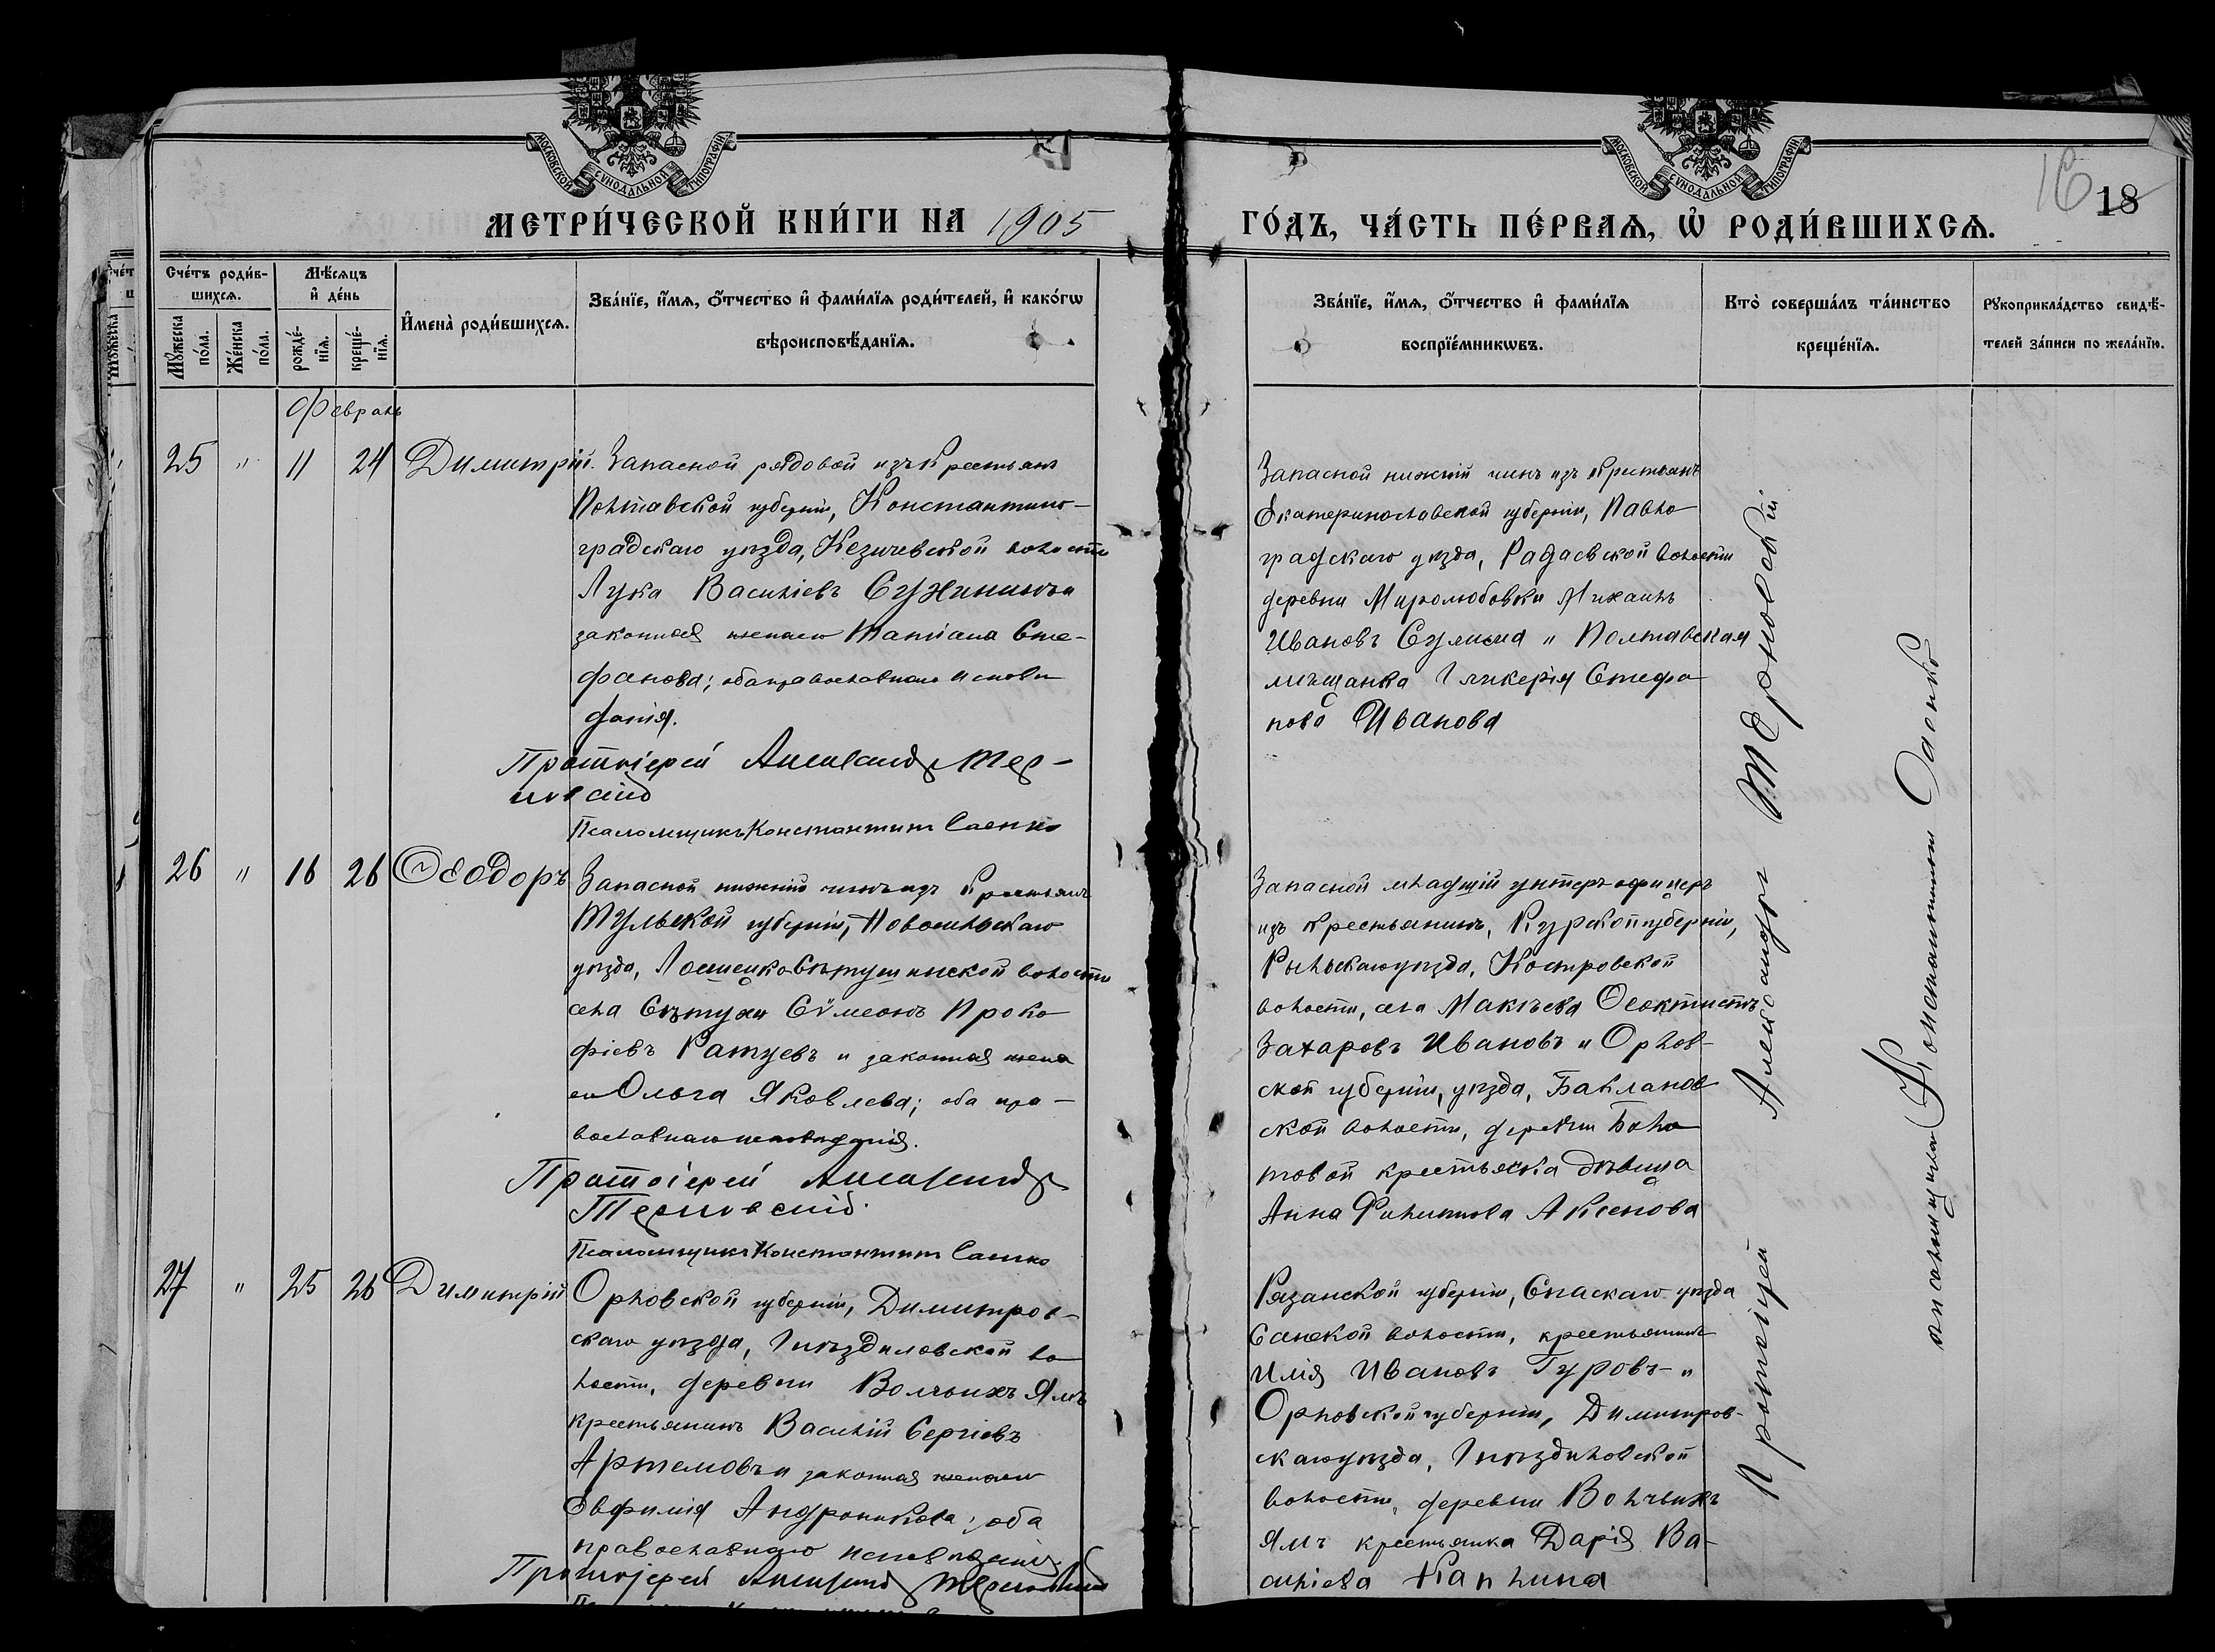 МОСКОВСКОЙ СѴНОДАЛЬНОЙ ТИПОГРАФІИ
МОСКОВСКОЙ СѴНОДАЛЬНОЙ ТИПОГРАФІИ
16
18
МЕТРИ́ЧЕСКОЙ КНИ́ГИ НА 1905
ГО́ДЪ, ЧА́СТЬ ПЕ́РВАѦ, Ѡ҆ РОДИ́ВШИХСѦ.
Сче́тъ роди́в-
шихсѧ.
Мѣ́сѧцъ
и҆ де́нь
Мꙋ́жеска
по́ла.
Же́нска
по́ла.
рожде́-
нїѧ.
креще́-
нїѧ.
И҆мена̀ роди́вшихсѧ.
Зва́нїе, и҆́мѧ, ѻ҆́тчество и҆ фами́лїѧ роди́телей, и҆ како́гѡ
вѣроисповѣ́данїѧ.
Зва́нїе, и҆́мѧ, ѻ҆́тчество и҆ фами́лїѧ
воспрїе́мникѡвъ.
Кто̀ соверша́лъ та́инство
креще́нїѧ.
Рꙋкоприкла́дство свидѣ́-
телей за́писи по жела́нїю.
Февраль
25 " 11 24 Димитрій.
Запасной рядовой изъ крестьянъ
Полтавской губерніи, Константино-
градскаго уѣзда, волости
Лука Василіевъ и
законная жена его Татіана Сте-
фанова; оба православнаго исповѣ
данія.
Протоіерей Александръ Тер-
новскій
Псаломщикъ Константинъ Саенко
Запасной нижній чинъ изъ крестьянъ
Екатеринославской губерніи, Павло
градскаго уѣзда, волости
деревни Миролюбовки Михаилъ
Ивановъ Сулима и Полтавская
мѣщанка Гликерія Стефа
нова Иванова
26 " 16 26 Ѳеодоръ
Запасной нижній чинъ изъ крестьянъ
Тульской губерніи, Новосильскаго
уѣзда, волости
села Сѵмеонъ Проко
фіевъ Ратуевъ и законная жена
его Ольга Яковлева; оба пра-
вославнаго исповѣданія.
Протоіерей Александръ
Терновскій.
Псаломщикъ Константинъ Саенко
Запасной младшій унтеръ офицеръ
изъ крестьянинъ, Курской губерніи,
Рыльскаго уѣзда, Костровской
волости, села Макѣева Ѳеоктистъ
Захаровъ Ивановъ и Орлов-
ской губерніи, уѣзда, Бакланов
ской волости, деревни Боло
товой крестьянка дѣвица
Анна Филиппова Аксенова
27 " 25 26 Димитрій
Орловской губерніи, Димитров-
скаго уѣзда, Гнѣздиловской во
лости, деревни Волчьихъ Ямъ
крестьянинъ Василій Сергіевъ
Артемовъ и законная жена его
Евфимія Андроникова; оба
православнаго исповѣданія
Протоіерей Александръ Терновскій
Рязанской губерніи, Спаскаго уѣзда
волости, крестьянинъ
Илія Ивановъ Гуровъ и
Орловской губерніи, Димитров-
скаго уѣзда, Гнѣздиловской
волости, деревни Волчьихъ
Ямъ крестьянка Дарія Ва-
силіева Карпина
Протоіерей Александръ Терновскій
псаломщикъ Константинъ Саенко